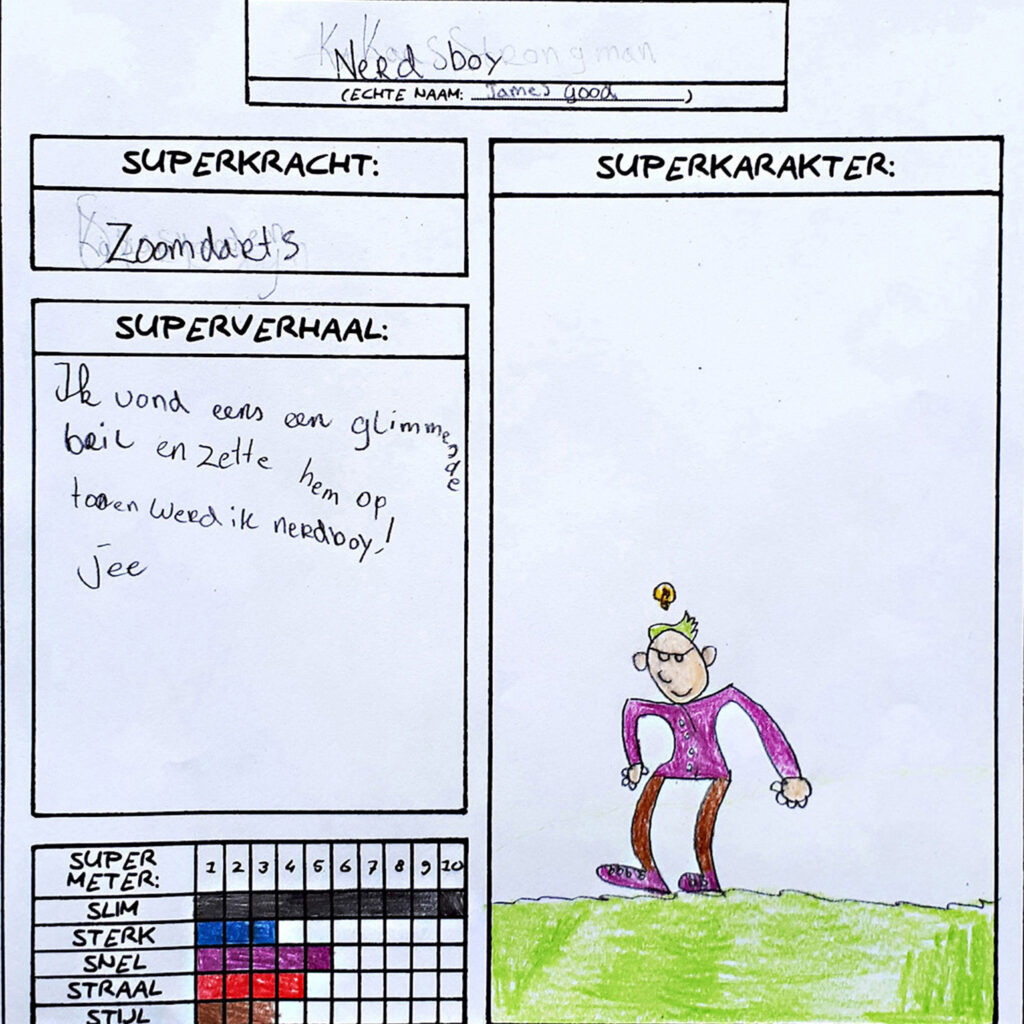 Nerdsboy
(ECHTE NAAM: James Good)
SUPERKRACHT:
Zoomdarts
SUPERVERHAAL:
Ik vond eens een glimmende
bril en zette hem op
toen werd ik nerdboy!
jee
SUPERKARAKTER:
SUPER METER: 1 2 3 4 5 6 7 8 9 10
SLIM
STERK
SNEL
STRAAL
STIJL